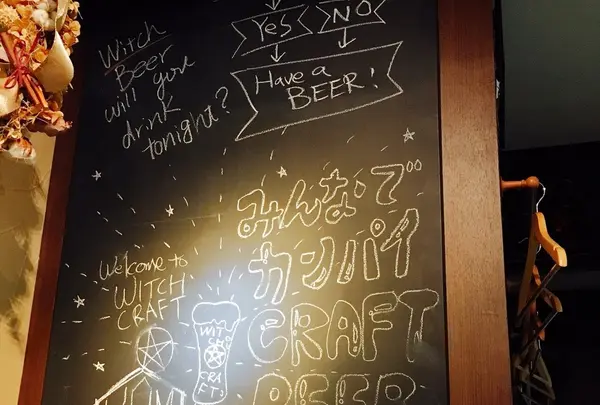 Yes
NO
Have a
BEER!
Witch
Beer
will you
drink
tonight?
みんなで
カンパイ
CRAFT
BEER
Welcome to
WITCH
CRAFT
WITCH
CRA
FT!